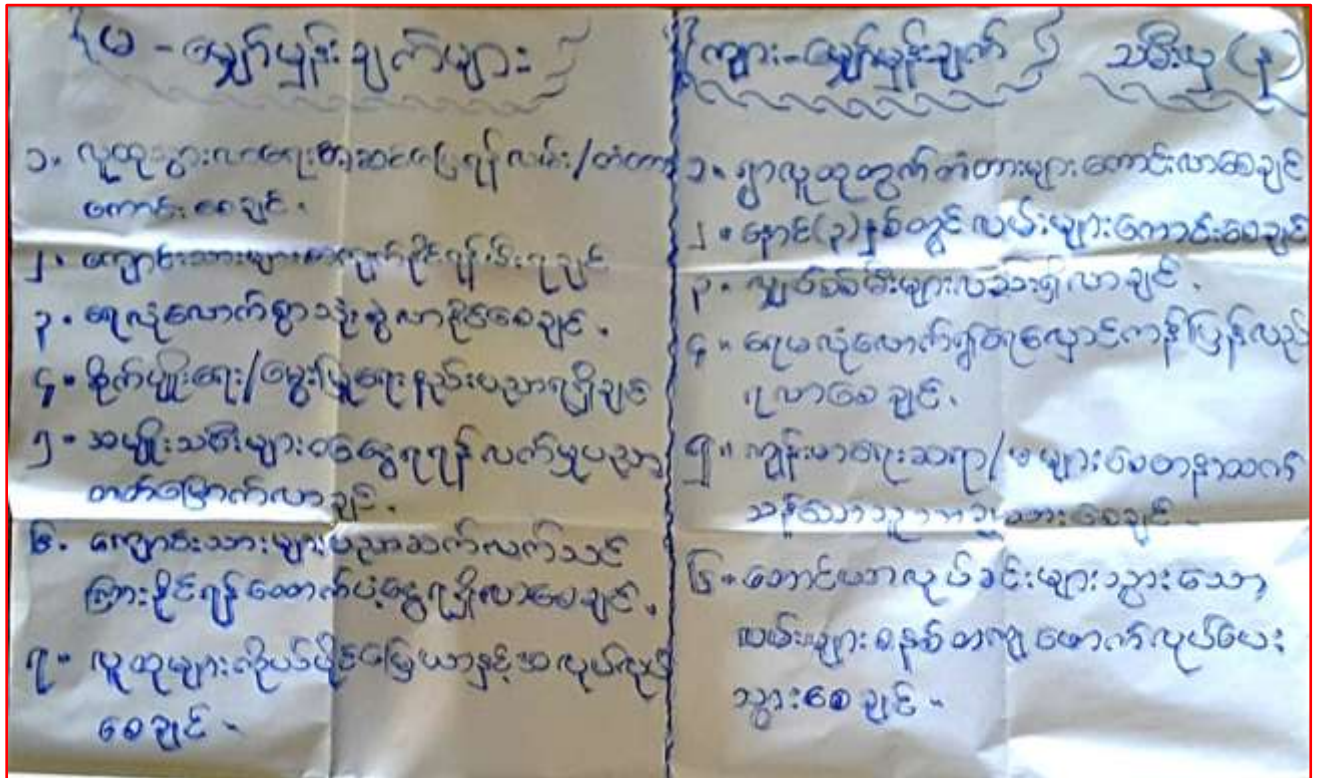 မ - မျှော်မှန်းချက်များ
၁. လူထုသွားလာရေးအဆင်ပြေရန်လမ်း/တံတား
ကောင်းစေချင်.
၂. ကျောင်းသားများ
၃. ရေလုံလောက်စွာသုံးစွဲလာနိုင်စေချင်.
၄. စိုက်ပျိုးရေး/မွေးမြူရေးနည်းပညာရရှိချင်
၅. အမျိုးသမီးများဝင်ငွေရရန်လက်မှုပညာ
တတ်မြောက်လာချင်.
၆. ကျောင်းသားများပညာဆက်လက်သင်
ကြားနိုင်ရန်ထောက်ပံ့ငွေရရှိလာစေချင်.
၇. လူထုများကိုယ်ပိုင်မြေယာနှင့်အလုပ်လုပ်
စေချင်.
ကျား-မျှော်မှန်းချက် သမီးယု (န)
၁. ရွာလူထုတွက်တံတားများကောင်းလာစေချင်
၂. နောင်(၃)နှစ်တွင်လမ်းများကောင်းစေချင်
၃. လျှပ်စစ်မီးများလည်းရှိလာချင်.
၄. ရေမလုံလောက်၍ရေလှောင်ကန်ပြန်လည်
ရလာစေချင်.
၅. ကျန်းမာရေးဆရာ/မများစေတနာထက်
သန်သော ထားစေချင်.
၆. တောင်ယာလုပ်ငန်းများသွားသော
လမ်းများ ဖောက်လုပ်ပေး
သွားစေချင်.